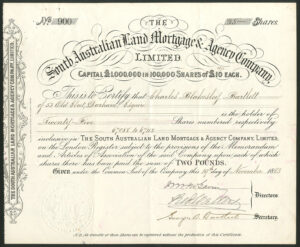 No. 900
25 Shares.
THE
South Australian Land Mortgage & Agency Company,
LIMITED.
CAPITAL £1,000,000 IN 100,000 SHARES OF £10 EACH.
This is to Certify that Charles Blakesley Bartlett
of 53 Old
is the holder of
Twenty Five Shares numbered respectively
inclusive in THE SOUTH AUSTRALIAN LAND MORTGAGE & AGENCY COMPANY, LIMITED,
on the London Register subject to the provisions of the Memorandum
and Articles of Association of the said Company upon each of which
shares there has been paid the sum of TWO POUNDS.
Given under the Common Seal of the Company this day of November 1883
Directors
Secretary
N.B. No transfer of these Shares can be registered without the production of this Certificate.